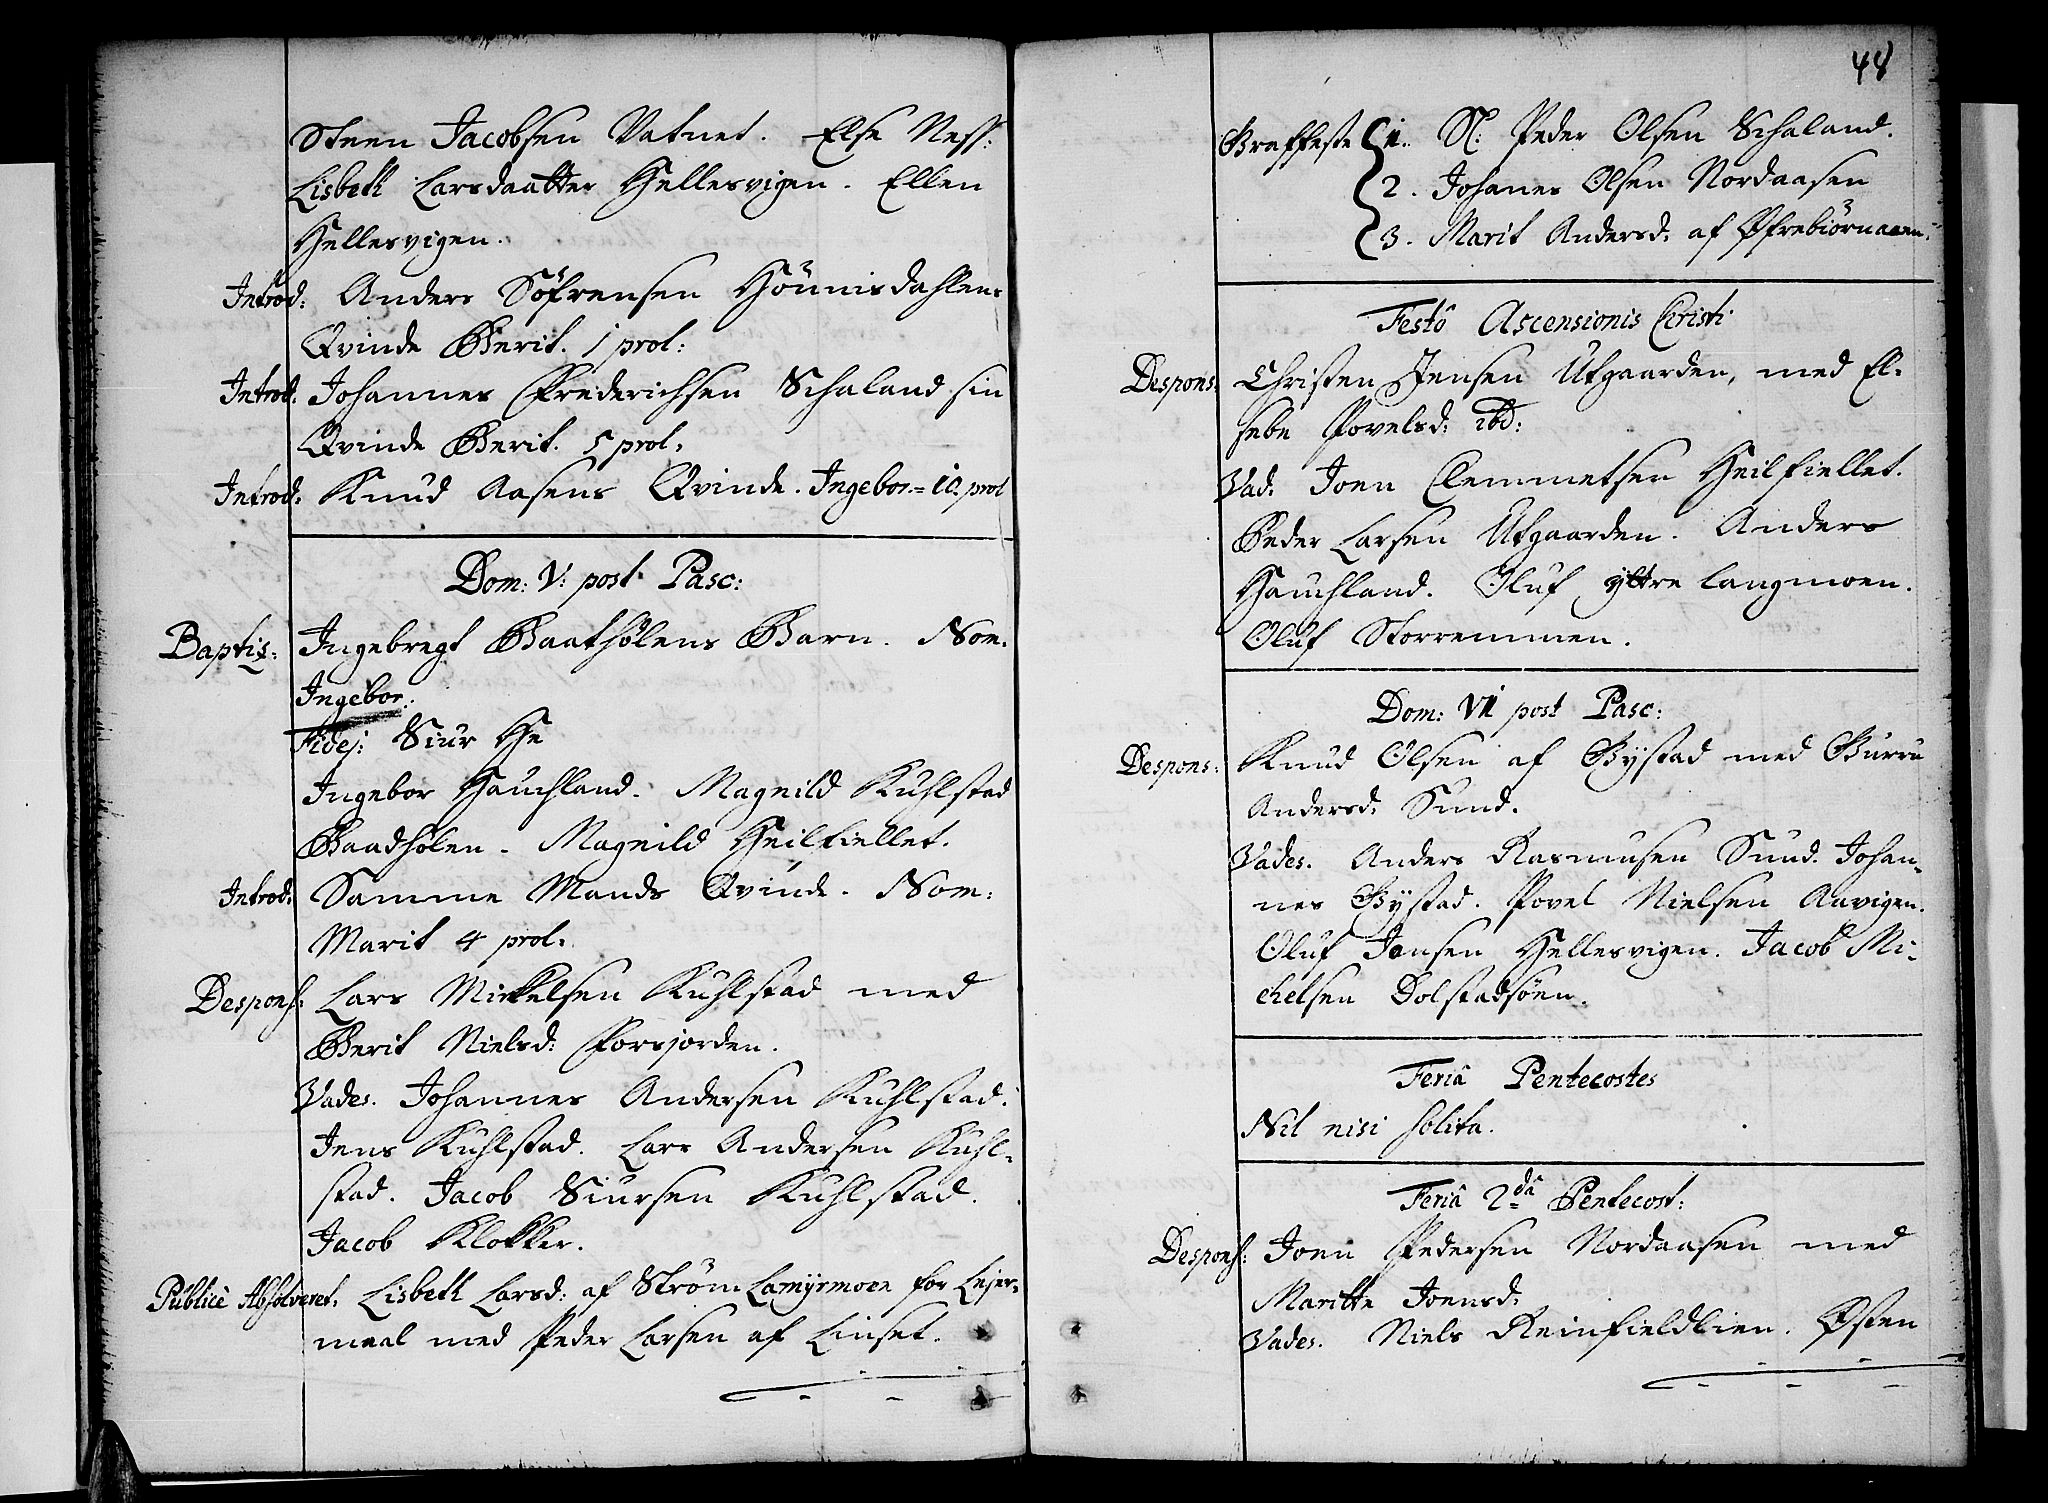 Steen Jacobsen Vatnet. Else Ness:
Lisbeth Larsdaatter Hellesvigen. Ellen
Hellesvigen.
Introd: Anders Söfrensen Hóúnisdahlens
Qvinde Berit. 1 prol:
Introd. Johannes Friderichsen Schaland sin
Qvinde Berit. 5 prol.
Introd: Knud Aasens Qvinde. Ingebor = 10. prol
Dom: V: post Pasc:
Baptis: Ingebregt Baathölens Barn. Nom.
Ingebor.
Fidej: Siur He
Ingebor Hauchland. Magnild Kuhlstad
Baadhölen. Magnild Heilfiellet.
Introd: Samme Mands Qvinde. Nom:
Marit 4 prol.
Desponss: Lars Mickelsen Kuhlstad med
Berit Nielsd: Forsjorden.
Vades. Johannes Andersen Kuhlstad.
Jens Kuhlstad. Lars Andersen Kuhl-
stad. Jacob Siursen Kuhlstad.
Jacob Klokker.
Publicè Absolveret. Lisbeth Larsd: af Ström Lamyrmoen for Lejer-
maal med Peder Larsen af Linset.
44
Graffæste 1. Sl: Peder Olsen Schaland.
2. Johanes Olsen Nordaasen
3. Marit Andersd: af Øfrebiörnaaen.
Festô Ascensionis Christi
Despons: Christen Jensen Utgaarden, med El-
sebe Povelsd: ibd:
Vad. Joen Clemmetsen Heilfiellet.
Peder Larsen Utgaarden. Anders
Hauchland. Oluf yttre Langmoen.
Oluf Storremmen.
Dom: VI post Pasc:
Despons: Knud Olsen af Bÿstad med Gurru
Andersd: Sund.
Vades. Anders Rasmusen Sund. Johan-
nes Bÿstad. Povel Nielsen Aavigen.
Oluf Jonsen Hellesvigen. Jacob Mi-
chelsen Dolstadsöen.
Feriâ Pentecostes
Nil nisi solita.
Feriâ 2dâ Pentecost:
Desponss: Joen Pedersen Nordaasen med
Maritte Joensd:
Vades. Niels Reinfieldlien. Østen